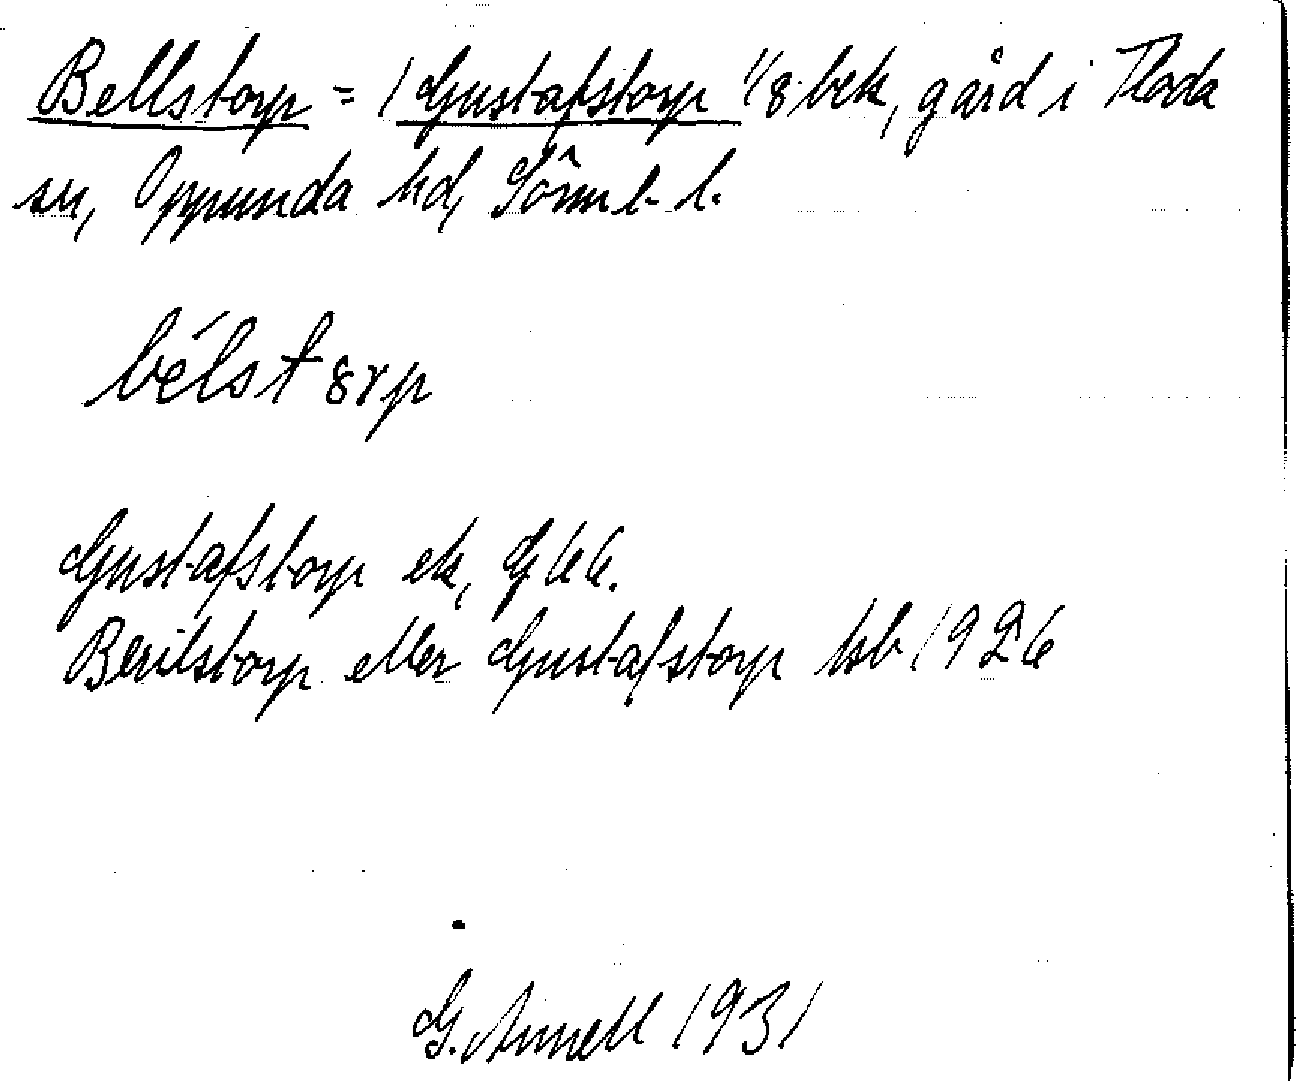 Bellstorp = 1 Gustafstorp 1/8 bek, gård i Floda
sn, Oppunda hd, Sörml. l.
bélstorp
Gustafstorp ek, G 66.
Beritstorp eller Gustafstorp hsb 1926
G. Arnell 1931